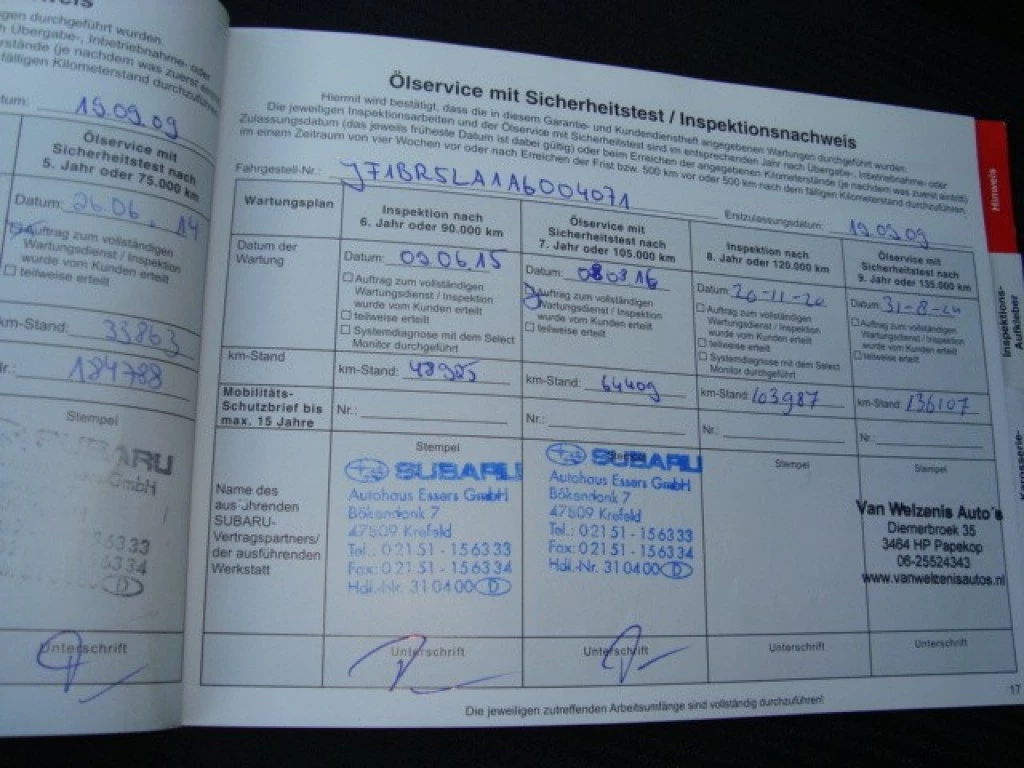 weis
gen durchgeführt wurden.
h Übergabe-, Inbetriebnahme- oder
rstände (je nachdem was zuerst
fälligen Kilometerstand durchzuführen
tum: 19.09.09
Ölservice mit
Sicherheitstest nach
5. Jahr oder 75.000 km
Datum: 26.06.14
Auftrag zum vollständigen
Wartungsdienst / Inspektion
wurde vom Kunden erteilt
teilweise erteilt
km-Stand: 33863
Nr.: 184788
Stempel
SUBARU
GmbH
56333
56334
D
Unterschrift
Ölservice mit Sicherheitstest / Inspektionsnachweis
Hiermit wird bestätigt, dass die in diesem Garantie- und Kundendienstheft angegebenen Wartungen durchgeführt wurden.
Die jeweiligen Inspektionsarbeiten und der Ölservice mit Sicherheitstest sind im entsprechenden Jahr nach Übergabe-, Inbetriebnahme- oder
Zulassungsdatum (das jeweils früheste Datum ist dabei gültig) oder beim Erreichen der angegebenen Kilometerstände (je nachdem was zuerst eintritt)
im einem Zeitraum von vier Wochen vor oder nach Erreichen der Frist bzw. 500 km vor oder 500 km nach dem fälligen Kilometerstand durchzuführen.
Fahrgestell-Nr.: JF1BR5LA1A6004071
Erstzulassungsdatum: 19.09.09
Wartungsplan
Inspektion nach
6. Jahr oder 90.000 km
Ölservice mit
Sicherheitstest nach
7. Jahr oder 105.000 km
Inspektion nach
8. Jahr oder 120.000 km
Ölservice mit
Sicherheitstest nach
9. Jahr oder 135.000 km
Datum der
Wartung
Datum: 09.06.15
Auftrag zum vollständigen
Wartungsdienst / Inspektion
wurde vom Kunden erteilt
teilweise erteilt
Systemdiagnose mit dem Select
Monitor durchgeführt
Datum: 080816
Auftrag zum vollständigen
Wartungsdienst / Inspektion
wurde vom Kunden erteilt
teilweise erteilt
Datum: 20-11-20
Auftrag zum vollständigen
Wartungsdienst / Inspektion
wurde vom Kunden erteilt
teilweise erteilt
Systemdiagnose mit dem Select
Monitor durchgeführt
Datum: 31-8-24
Auftrag zum vollständigen
Wartungsdienst / Inspektion
wurde vom Kunden erteilt
teilweise erteilt
km-Stand
km-Stand: 48985
km-Stand: 64409
km-Stand: 103987
km-Stand: 136107
Mobilitäts-
Schutzbrief bis
max. 15 Jahre
Nr.:
Nr.:
Nr.:
Nr.:
Name des
ausführenden
SUBARU-
Vertragspartners/
der ausführenden
Werkstatt
Stempel
SUBARU
Autohaus Essers GmbH
Bökendonk 7
47809 Krefeld
Tel.: 02151 - 156333
Fax: 02151 - 156334
Hdl.-Nr. 310400 D
Stempel
SUBARU
Autohaus Essers GmbH
Bökendonk 7
47809 Krefeld
Tel.: 02151 - 156333
Fax: 02151 - 156334
Hdl.-Nr. 310400 D
Stempel
Stempel
Van Welzenis Auto's
Diemerbroek 35
3464 HP Papekop
06-25524343
www.vanwelzenisautos.nl
Unterschrift
Unterschrift
Unterschrift
Unterschrift
Die jeweiligen zutreffenden Arbeitsumfänge sind vollständig durchzuführen!
17
Hinweis
Inspektions-
Aufkleber
Karosserie-